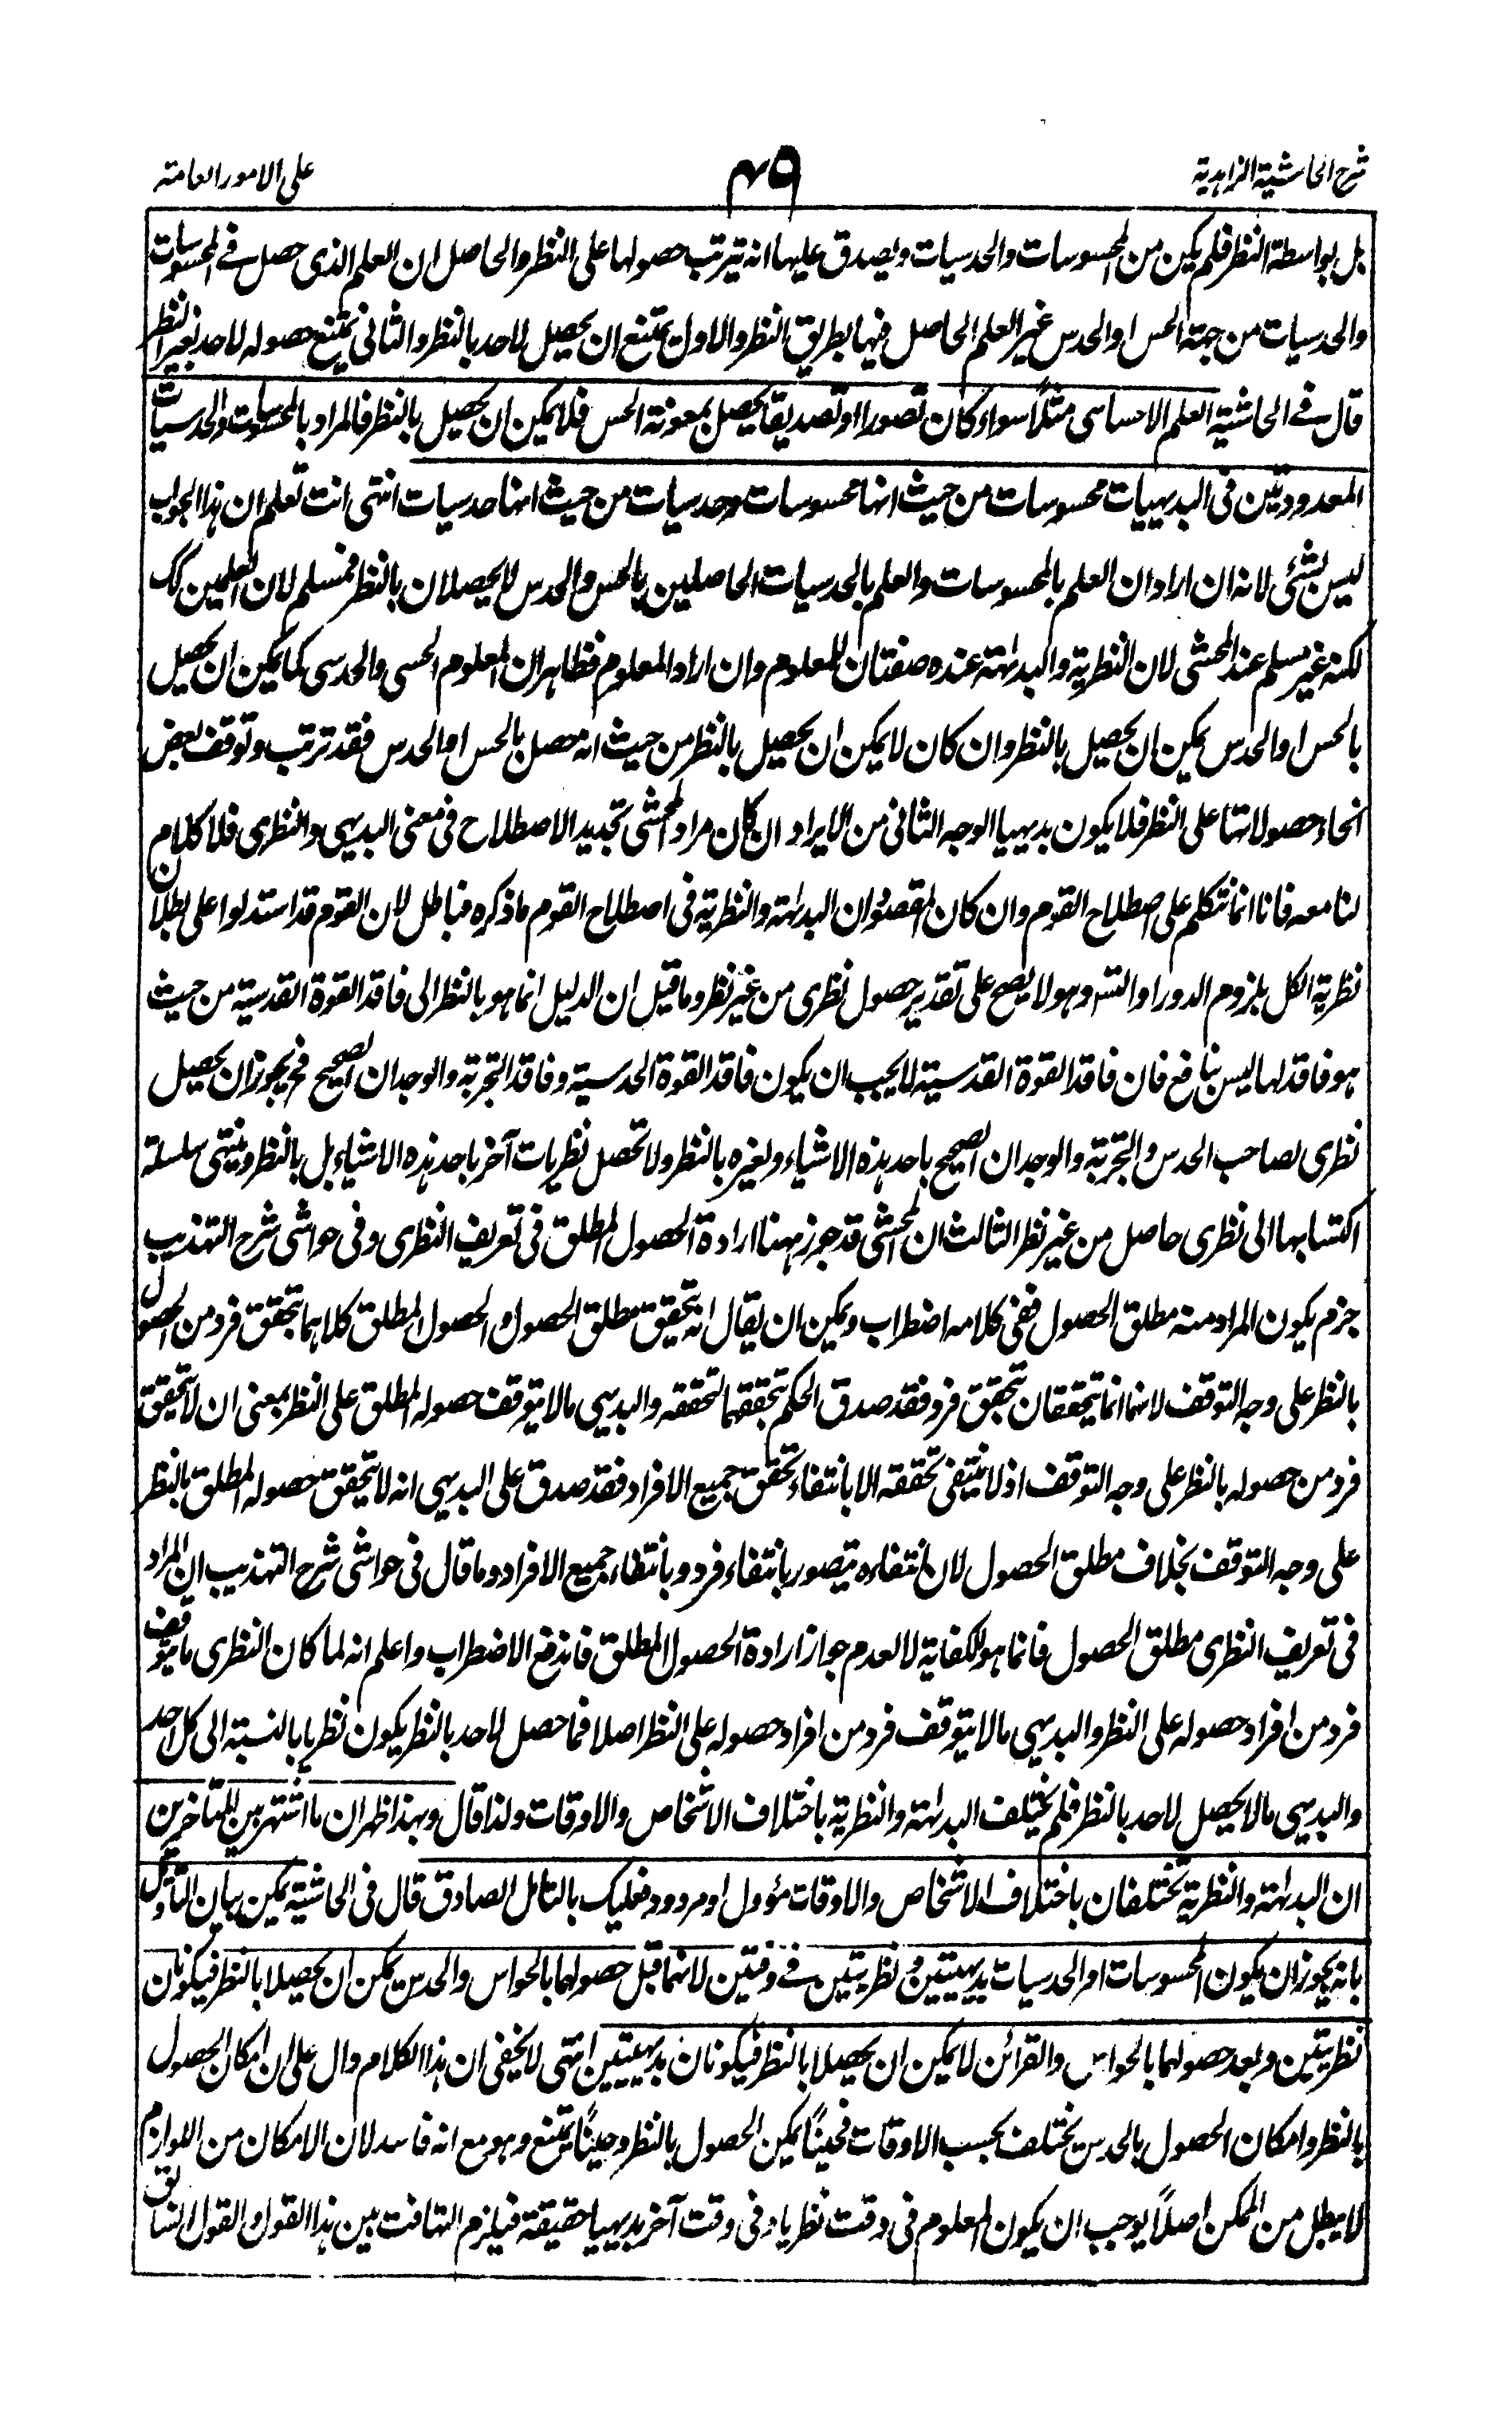 شرح الحاشية الزاهدية
۴۹
على الامور العامة
بل بواسطة النظر فلم يكن من المحسوسات والحدسيات ويصدق عليها انه تيرتب حصولها على النظر والحاصل ان العلم الذى حصل فے المحسوسات
والحدسيات من جهة الحس او الحدس غير العلم الحاصل فيها بطريق النظر والاول يمتنع ان يحصل لاحد بالنظر والثانى يمتنع حصوله لاحد بغير النظر
قال فے الحاشية العلم الاحساسى مثلاً سواء كان تصورا او تصديقا يحصل بمعونة الحس فلا يمكن ان يحصل بالنظر فالمراد بالمحسوسات والحدسيات
المعدودتين فى البديهيات محسوسات من حيث انها محسوسات وحدسيات من حيث انها حدسيات انتهى انت تعلم ان هذا الجواب
ليس بشئى لانه ان اراد ان العلم بالمحسوسات والعلم بالحدسيات الحاصلين بالحس والحدس لا يحصلان بالنظر فمسلم لان العلمين كك
لكنه غير مسلم عند المحشى لان النظرية والبداهة عنده صفتان للمعلوم وان اراد المعلوم فظاهر ان المعلوم الحسى والحدسى كما يمكن ان يحصل
بالحس او الحدس يمكن ان يحصل بالنظر وان كان لا يمكن ان يحصل بالنظر من حيث انه حصل بالحس او الحدس فقد ترتب وتوقف بعض
انحاء حصولاتها على النظر فلا يكون بديهيا الوجه الثانى من الايراد ان كان مراد المحشى تجديد الاصطلاح فى معنى البديهى والنظرى فلا كلام
لنا معه فانا انما نتكلم على اصطلاح القوم وان كان المقصود ان البداهة والنظرية فى اصطلاح القوم ما ذكره فباطل لان القوم قد استدلوا على بطلان
نظرية الكل بلزوم الدور او التسـ وهو لا يصح على تقدير حصول نظرى من غير نظر وما قيل ان الدليل انما هو بالنظر الى فاقد القوة القدسية من حيث
هو فاقد لها ليس بنافع فان فاقد القوة القدسية لا يجب ان يكون فاقد القوة الحدسية وفاقد التجربة والوجدان الصحيح فح يجوز ان يحصل
نظرى لصاحب الحدس والتجربة والوجدان الصحيح باحد هذه الاشياء ولغيره بالنظر ولا تحصل نظريات آخر باحد هذه الاشياء بل بالنظر وينتهى سلسلة
اكتسابها الى نظرى حاصل من غير نظر الثالث ان المحشى قد جوز ههنا ارادة الحصول المطلق فى تعريف النظرى وفى حواشى شرح التهذيب
جزم بكون المراد منه مطلق الحصول ففى كلامه اضطراب ويمكن ان يقال انه يتحقق مطلق الحصول والحصول المطلق كلاهما بتحقق فرد من الحصول
بالنظر على وجه التوقف لانهما انما يتحققان بتحقق فرد فقد صدق الحكم بتحققهما لتحققه والبديهى ما لا يتوقف حصوله المطلق على النظر بمعنى ان لا يتحقق
فرد من حصوله بالنظر على وجه التوقف اذ لا ينتفى تحققه الا بانتفاء تحقق جميع الافراد فقد صدق على البديهى انه لا يتحقق حصوله المطلق بالنظر
على وجه التوقف بخلاف مطلق الحصول لان انتفاءه يتصور بانتفاء فرد وبانتفاء جميع الافراد وما قال فى حواشى شرح التهذيب ان المراد
فى تعريف النظرى مطلق الحصول فانما هو للكفاية لا لعدم جواز ارادة الحصول المطلق فاندفع الاضطراب واعلم انه لما كان النظرى ما يتوقف
فرد من افراد حصوله على النظر والبديهى ما لا يتوقف فرد من افراد حصوله على النظر اصلا فما حصل لاحد بالنظر يكون نظريا بالنسبة الى كل احد
والبديهى ما لا يحصل لاحد بالنظر فلم يختلف البداهة والنظرية باختلاف الاشخاص والاوقات ولذا قال وبهذا ظهر ان ما اشتهر بين المتأخرين
ان البداهة والنظرية تختلفان باختلاف الاشخاص والاوقات مؤول او مردود فعليك بالتامل الصادق قال فى الحاشية يمكن بيان التأويل
بانه يجوز ان يكون المحسوسات او الحدسيات بديهيتين ونظريتين فے وقتين لانهما قبل حصولهما بالحواس والحدس يمكن ان يحصلا بالنظر فيكونان
نظريتين وبعد حصولهما بالحواس والقرائن لا يمكن ان يحصلا بالنظر فيكونان بديهيتين انتهى لا يخفى ان هذا الكلام دال على ان امكان الحصول
بالنظر وامكان الحصول بالحدس يختلف بحسب الاوقات فحيناً يمكن الحصول بالنظر وحيناً يمتنع وهو مع انه فاسد لان الامكان من اللوازم
لا يبطل من الممكن اصلاً يوجب ان يكون المعلوم فى وقت نظريا وفى وقت آخر بديهيا حقيقة فيلزم التهافت بين هذا القول والقول السابق